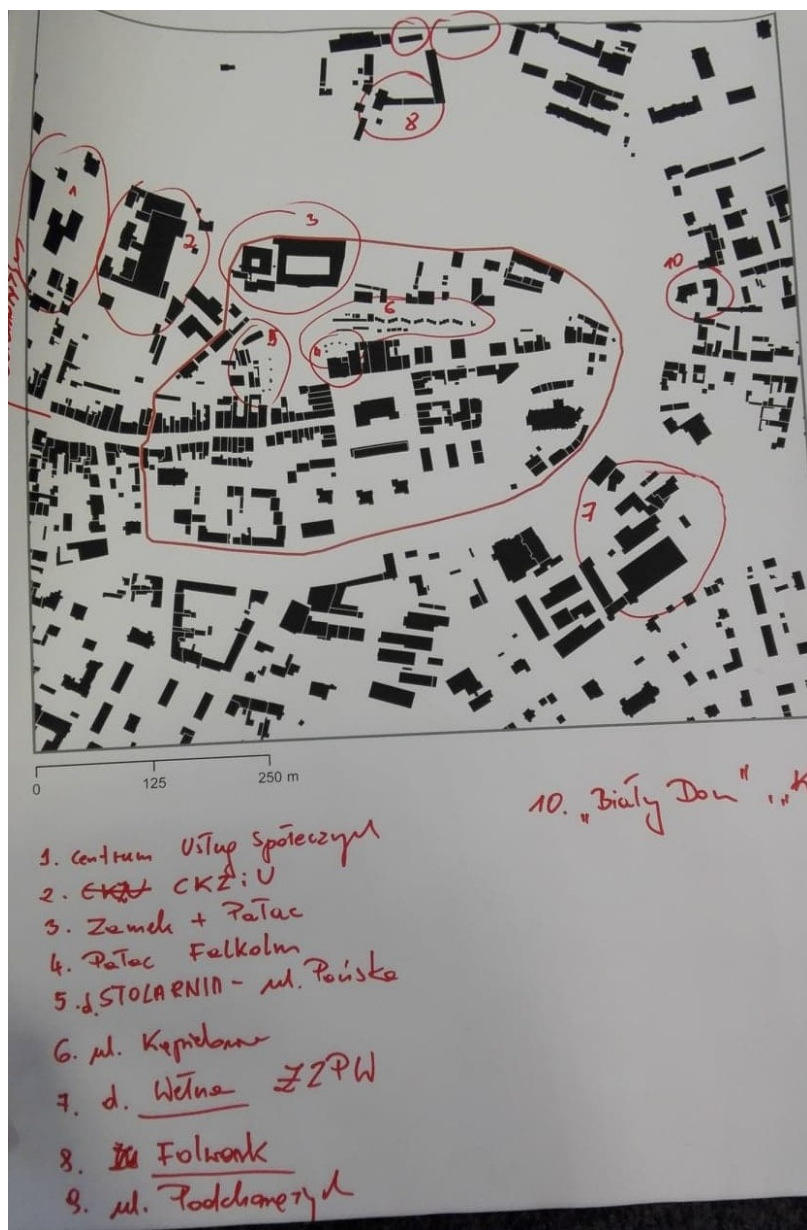 1
2
3
10
5
6
4
7
8
0 125 250 m
10. „Biały Dom”, „K
1. Centrum Usług Społeczych
2. CKZiU
3. Zamek + Pałac
4. Pałac
5. d. STOLARNIA - ul. Pańska
6. ul. Kąpielowa
7. d. Wełna ŻZPW
8. Folwark
9. ul. Podchorążych